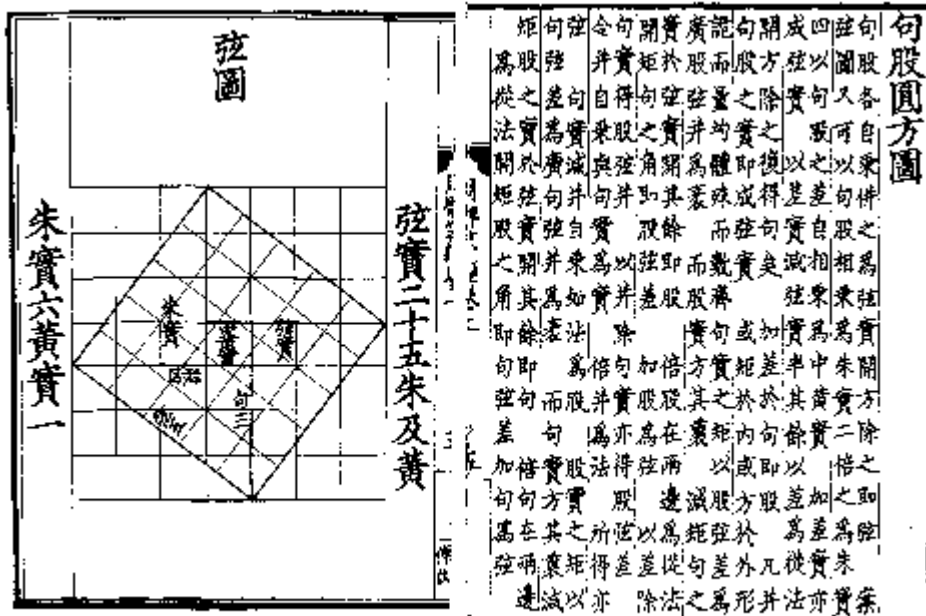 句股圓方圖
句股各自乘併之為弦實開方除之即弦 案
弦圖又可以句股相乘為朱實二倍之為朱實
四以句股之差自相乘為中黃實加差實亦
成弦實 以差實減弦實半其餘以差為從法
開方除之復得句矣 加差於句即股 凡并
句股之實即成弦實 或矩於內或方於外形
詭而量均體殊而數齊 句實之矩以股弦差為
廣股弦并為袤 而股實方其裏 減矩句之
實於弦實開其餘即股 倍股在兩邊為從法
開矩句之角即股弦差 加股為弦 以差除
句實得股弦并 以并除句實亦得股弦差
令并自乘與句實為實 倍并為法 所得亦
弦 句實減并自乘如法為股 股實之矩以
句弦差為廣句弦并為袤 而句實方其裏 減
矩股之實於弦實開其餘即句 倍句在兩邊
為從法開矩股之角即句弦差加句為弦
弦圖
弦實二十五朱及黃
朱實
黃實
句三
朱實六黃實一